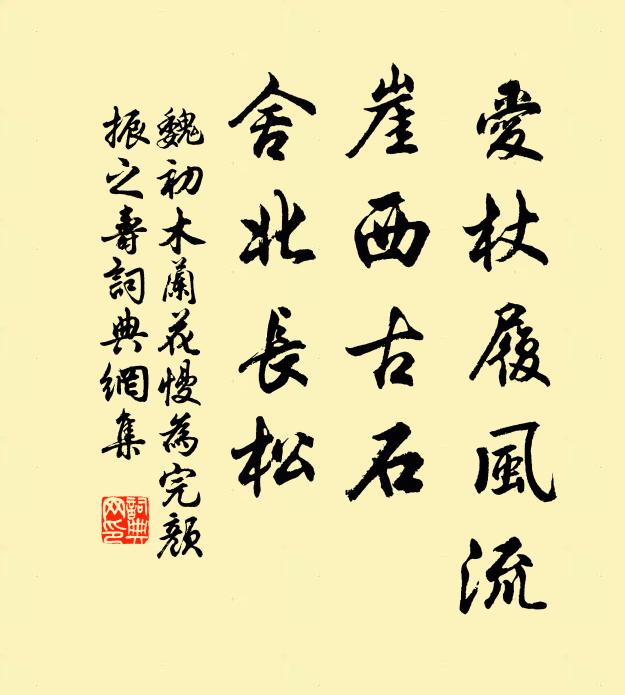 愛杖履風流
崖西古石
舍北長松
魏初木蘭花慢為完顏
振之壽詞典網集
詞典
网印